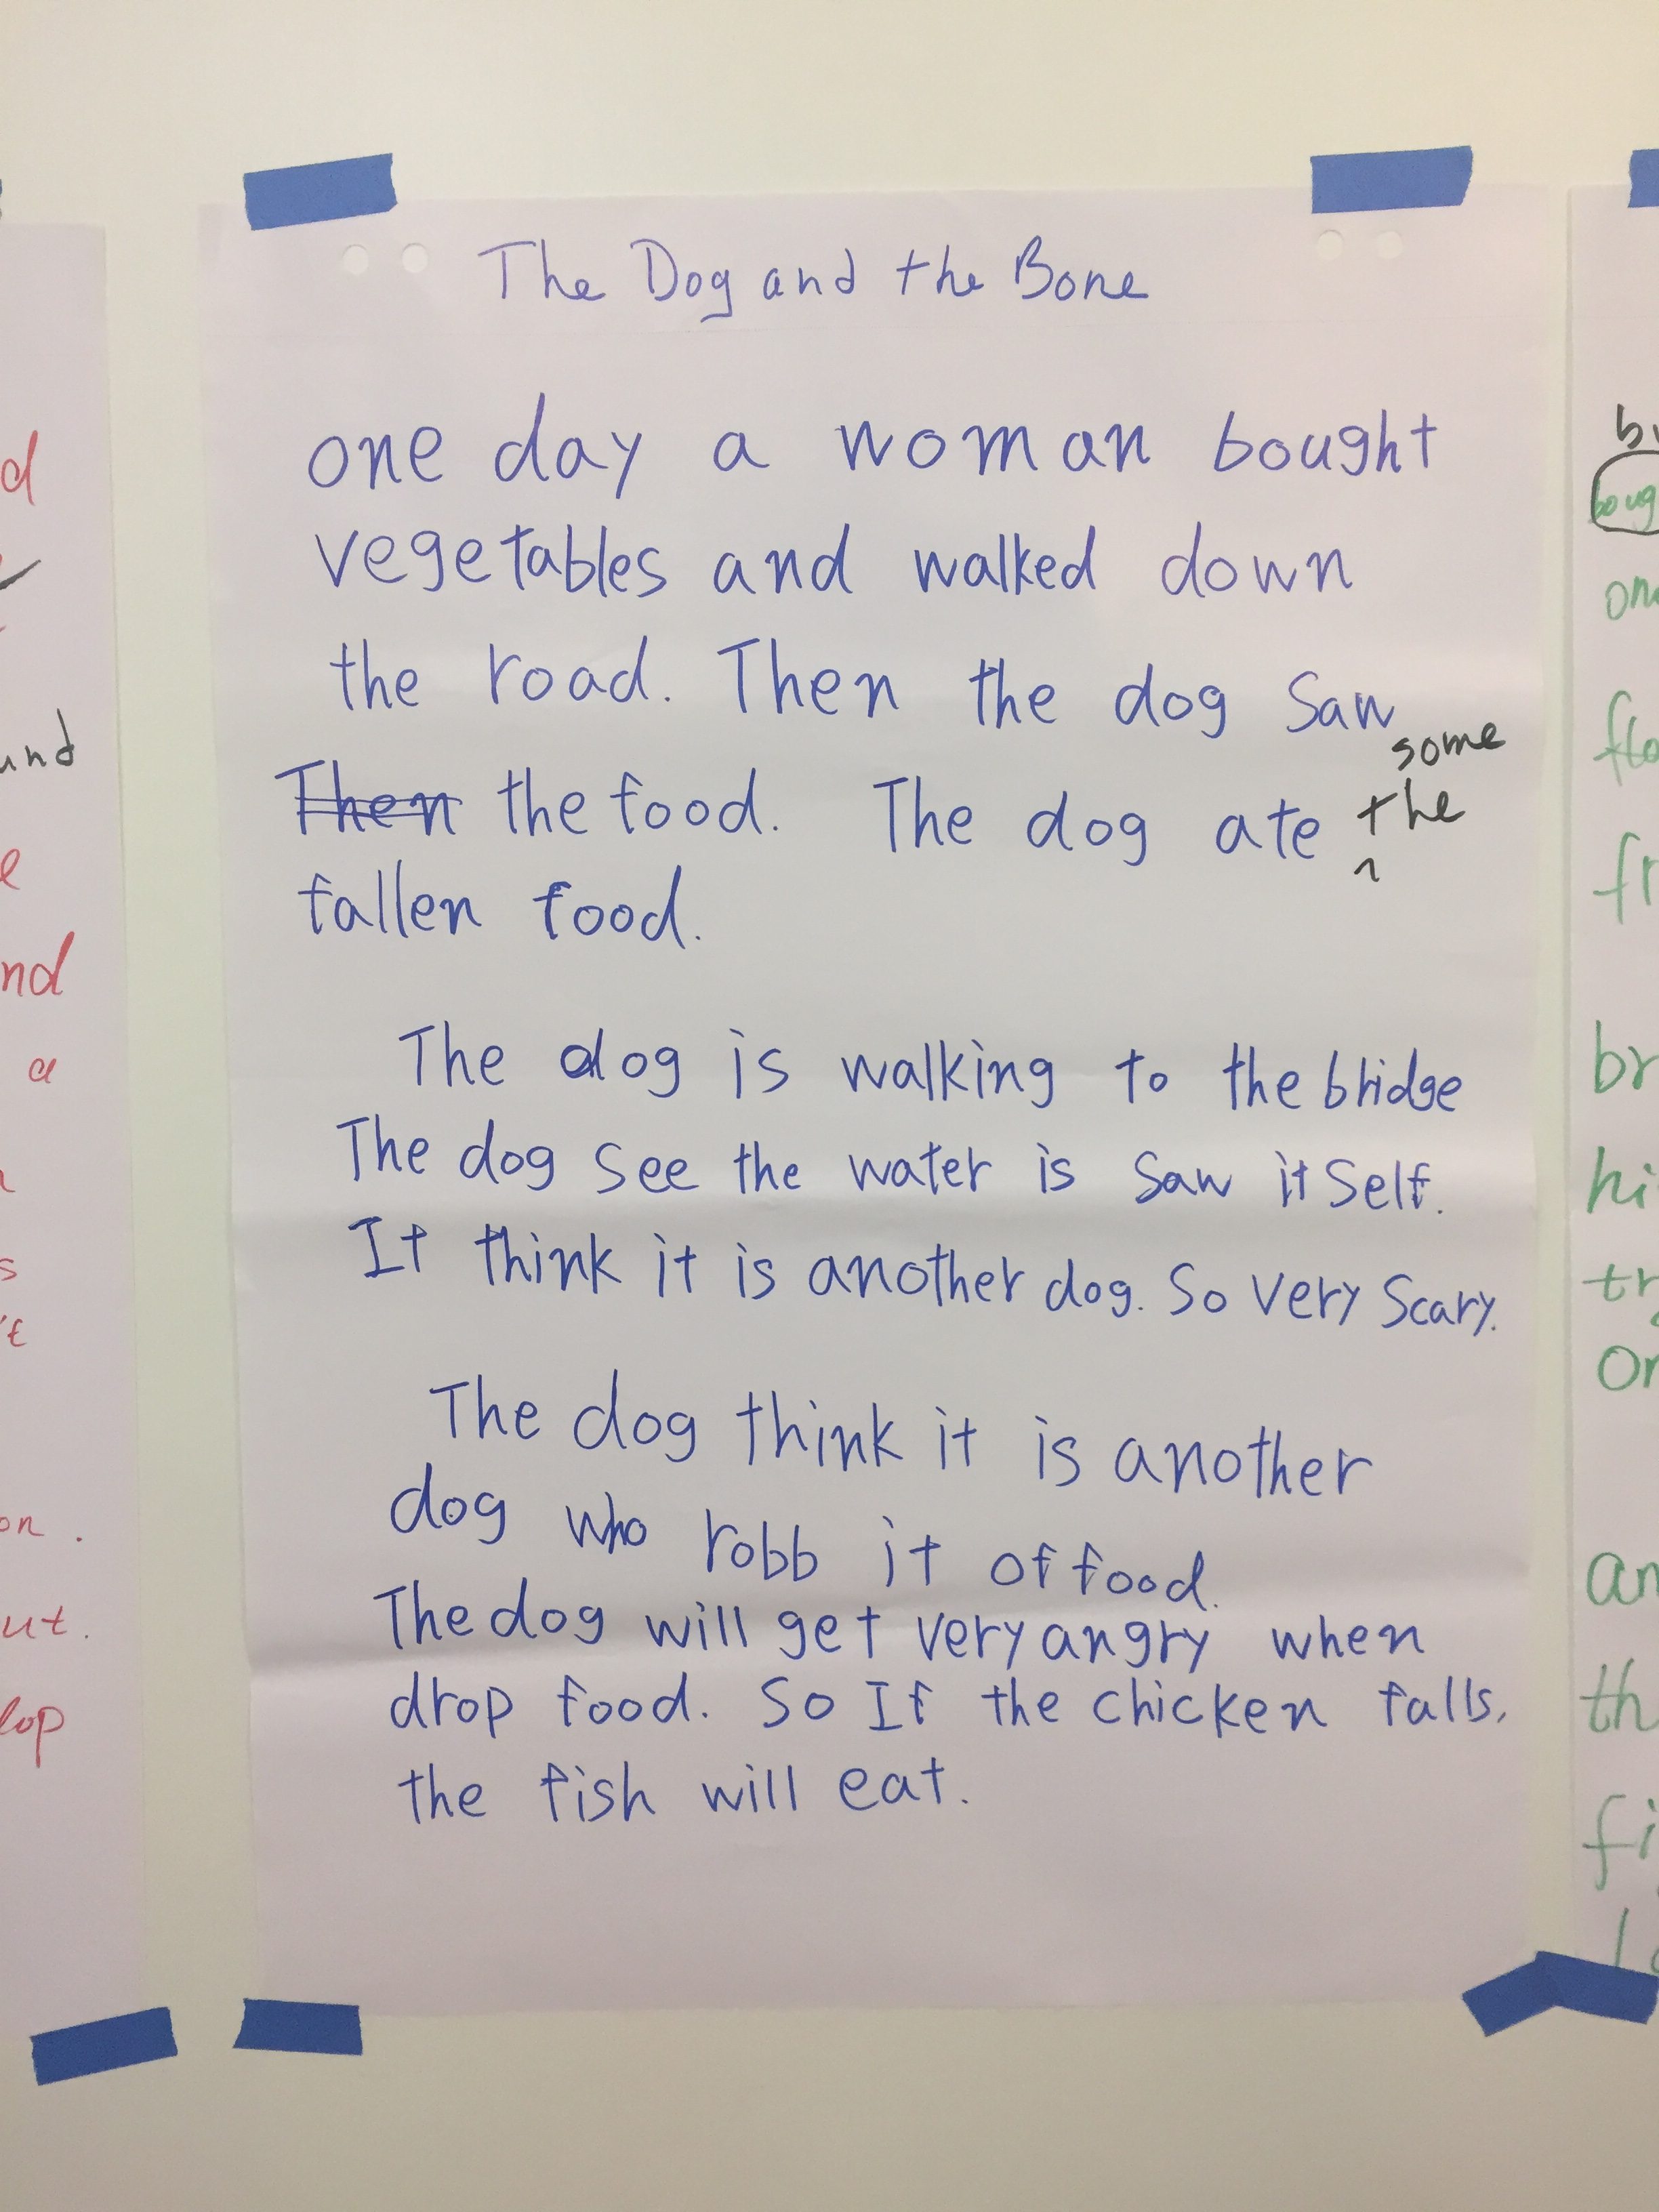 The Dog and the Bone
one day a woman bought
vegetables and walked down
the road. Then the dog saw
some
Then the food. The dog ate the
fallen food.
The dog is walking to the bridge
The dog see the water is saw itself.
It think it is another dog. So very scary.
The dog think it is another
dog who robb it of food.
The dog will get very angry when
drop food. So If the chicken falls,
the fish will eat.
d
und
e
nd
a
s
't
on.
ut.
lop
bu
boug
one
flo
fr
br
hi
tr
or
an
th
fi